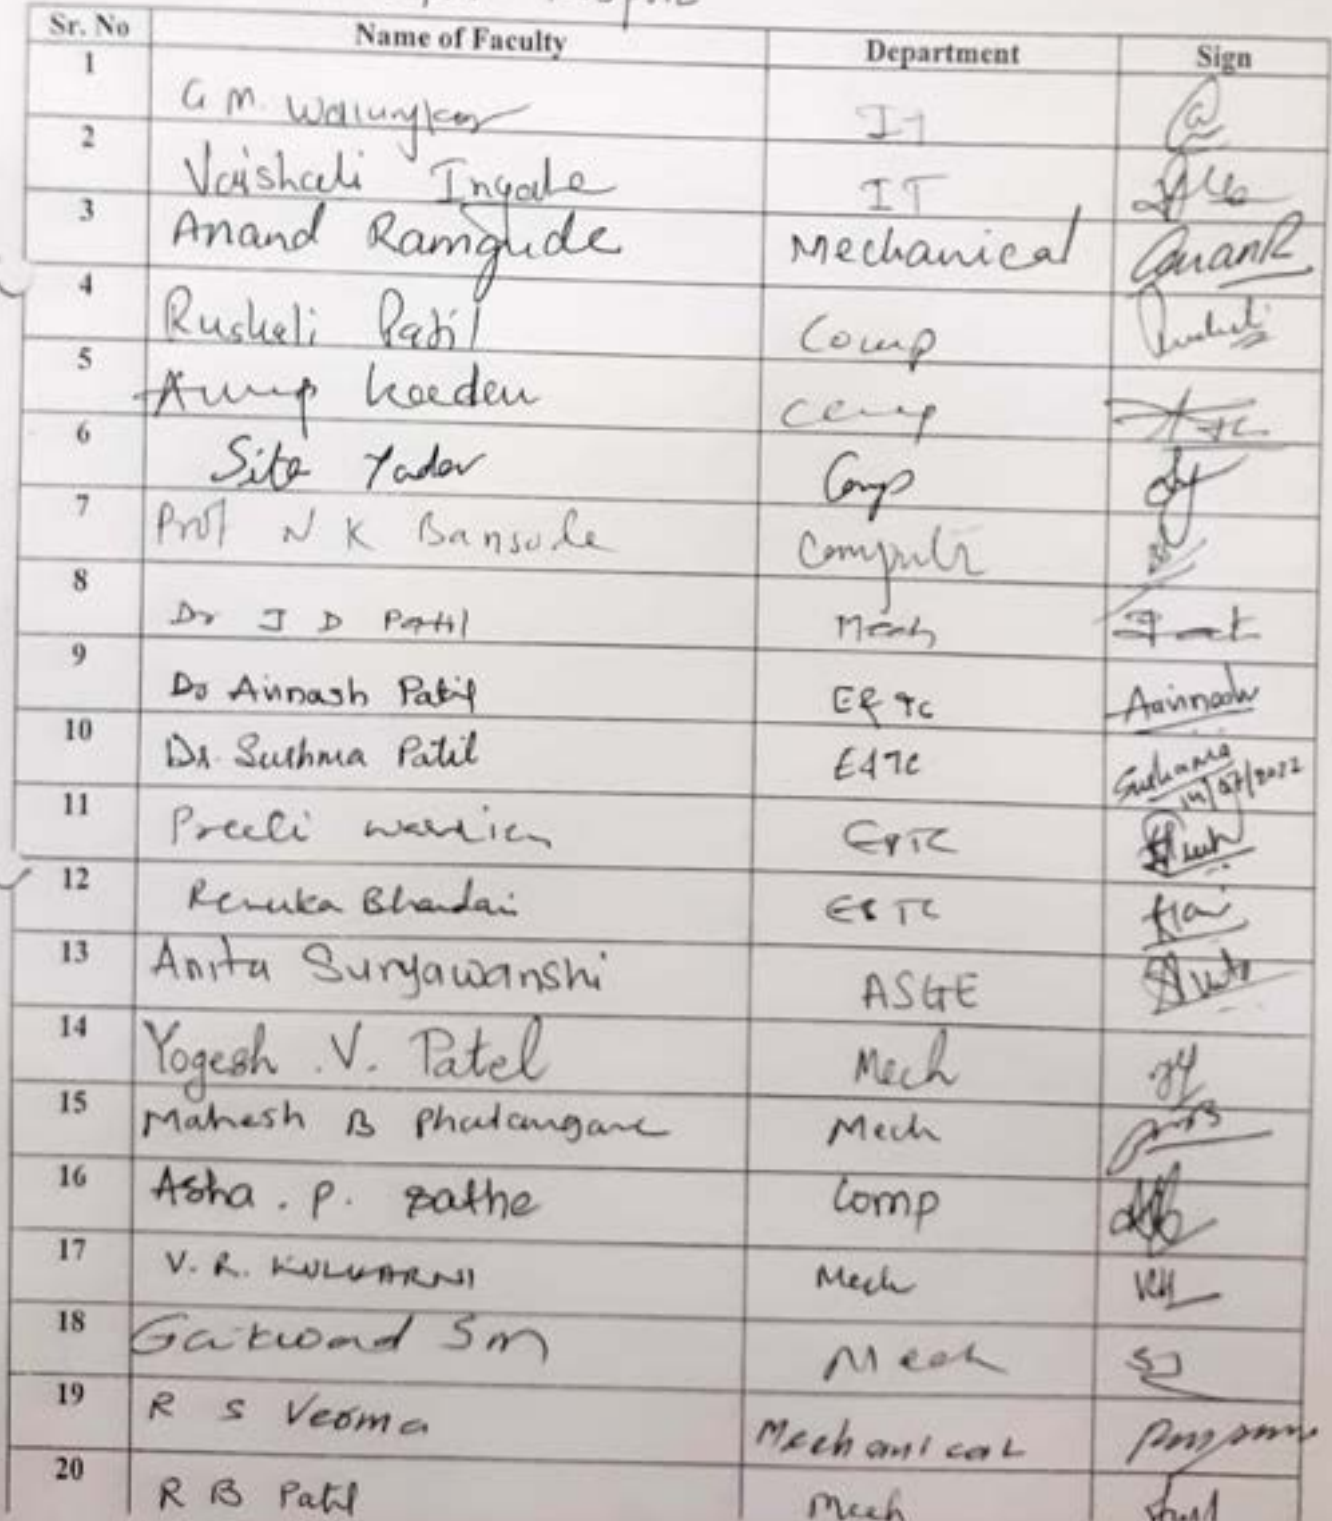 Sr. No Name of Faculty Department Sign
1 G M. Walunjkar IT
2 Vaishali Ingale IT
3 Anand Ramgude Mechanical AnanR
4 Rushali Patil Comp Rushali
5 Anup Kadam Comp
6 Sita Yadav Comp
7 Prof N K Bansode Computer
8 Dr J D Patil Mech
9 Dr Avinash Patil E&TC Aavinash
10 Dr. Sushma Patil E&TC Sushama
14/07/2022
11 Preeti E&TC
12 Renuka Bhandari E&TC
13 Anita Suryawanshi ASGE
14 Yogesh .V. Patel Mech
15 Mahesh B Phalangane Mech
16 Asha . P. Sathe Comp
17 V. R. KULKARNI Mech
18 Gaikwad Sm Mech
19 R S Verma Mechanical
20 R B Patil Mech